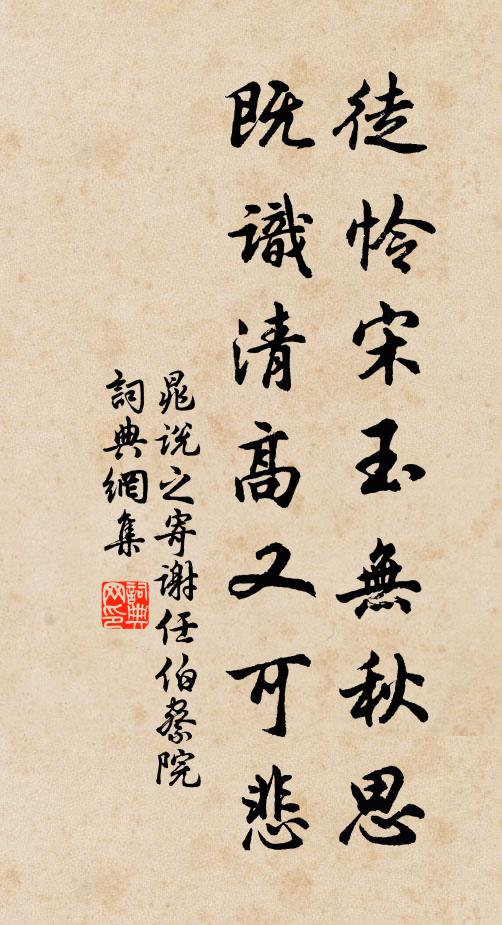 徒怜宋玉無秋思
既識清高又可悲
晁说之寄謝任伯察院
詞典網集
詞典网印